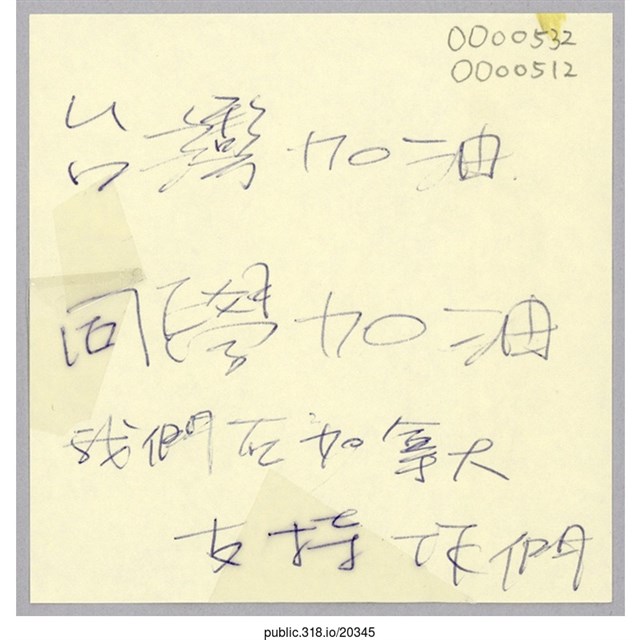 0000532
0000512
台灣加油
同學加油
我們在加拿大
支持你們
public.318.io/20345